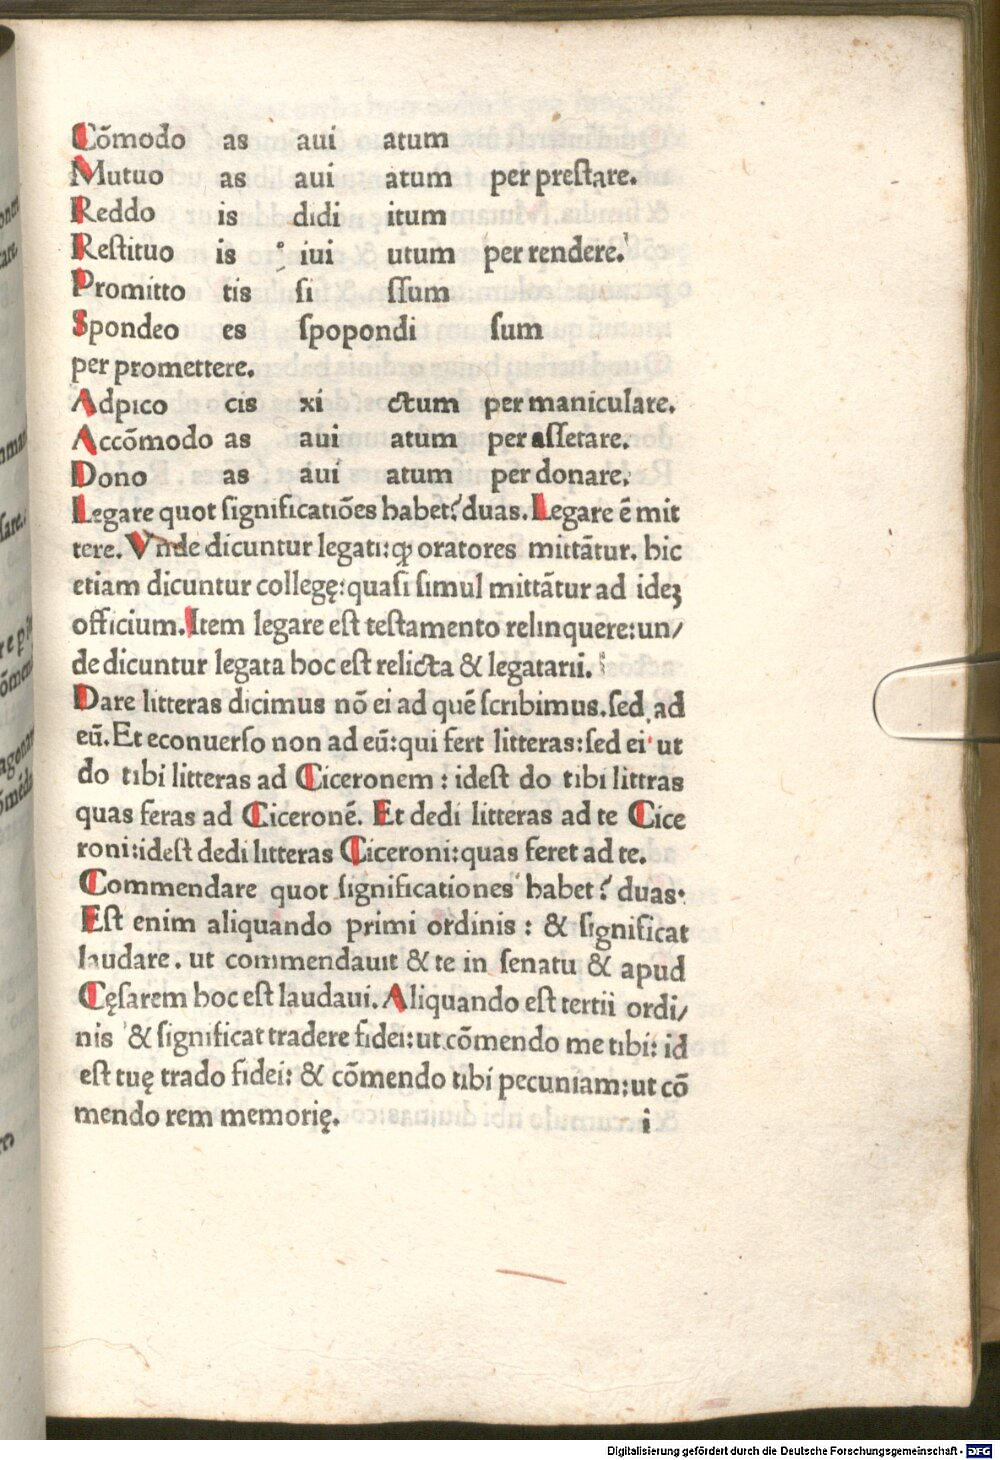 Cōmodo as aui atum
Mutuo as aui atum per prestare.
Reddo is didi itum
Restituo is iui utum per rendere.
Promitto tis si ssum
Spondeo es spopondi sum
per promettere.
Adpico cis xi ctum per maniculare.
Accōmodo as aui atum per assetare.
Dono as aui atum per donare.
Legare quot significatiōes habet? duas. Legare ē mit
tere. Vnde dicuntur legati: ꝙ oratores mittātur. hic
etiam dicuntur collegę: quasi simul mittātur ad ideꝫ
officium. Item legare est testamento relinquere: un/
de dicuntur legata hoc est relicta & legatarii.
Dare litteras dicimus nō ei ad quē scribimus. sed ad
eū. Et econuerso non ad eū: qui fert litteras: sed ei ut
do tibi litteras ad Ciceronem: idest do tibi littras
quas feras ad Ciceronē. Et dedi litteras ad te Cice
roni: idest dedi litteras Ciceroni: quas feret ad te.
Commendare quot significationes habet? duas.
Est enim aliquando primi ordinis: & significat
laudare. ut commendauit & te in senatu & apud
Cęsarem hoc est laudaui. Aliquando est tertii ordi/
nis & significat tradere fidei: ut cōmendo me tibi: id
est tuę trado fidei: & cōmendo tibi pecuniam: ut cō
mendo rem memorię.
i
Digitalisierung gefördert durch die Deutsche Forschungsgemeinschaft - DFG